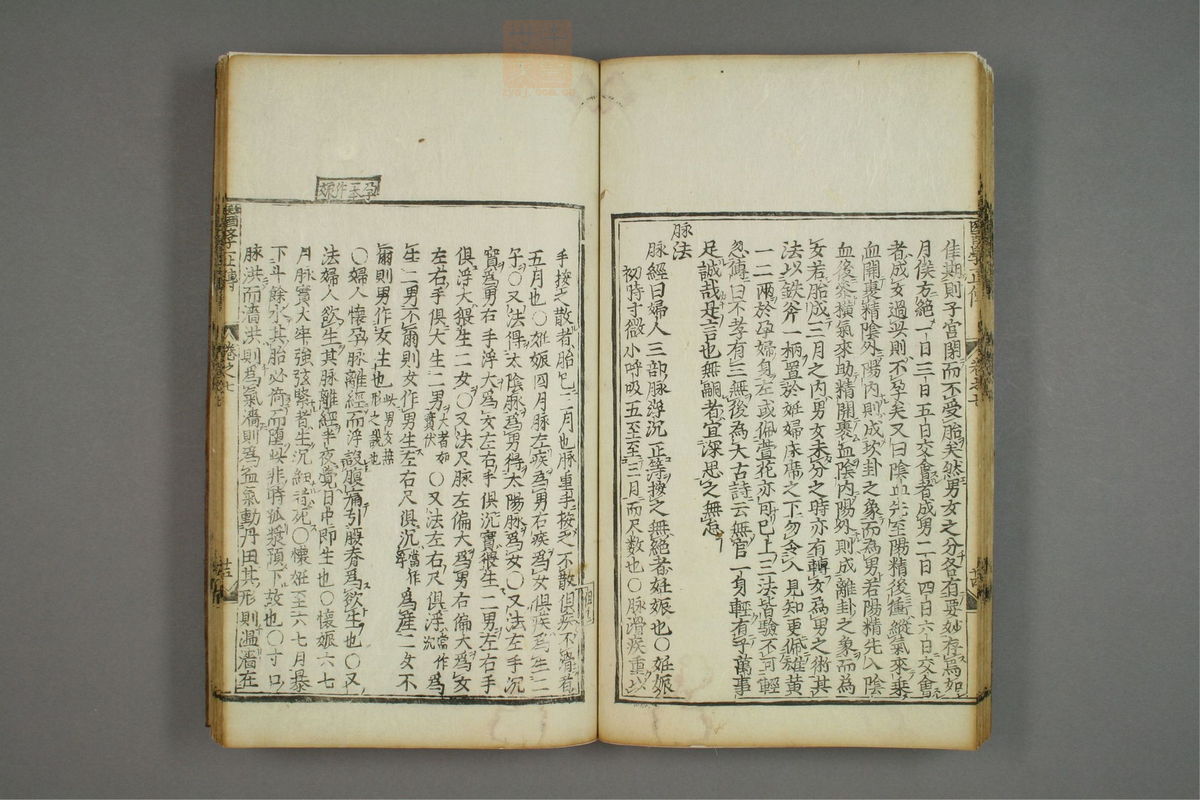 佳期則子宮閉而不受胎矣然男女之分各有要妙存焉如
月候方絕一日三日五日交會者成男二日四日六日交會
者成女過此則不孕矣又曰陰血先至陽精後衝縱氣來乘
血開裹精陰外陽內則成坎卦之象而為男若陽精先入陰
血後參橫氣來助精開裹血陰內陽外則成離卦之象而為
女若胎成三月之內男女未分之時亦有轉女為男之術其
法以鉄斧一柄置於妊婦床席之下勿令人見知更佩雄黄
一二兩於孕婦身左或佩萱花亦可已上三法皆驗不可輕
忽傳曰不孝有三無後為大古詩云無官一身輕有子萬事
足誠哉是言也無嗣者宜深思之無忽
脉法
脉經曰婦人三部脉浮沉正等按之無絕者妊娠也〇妊娠
初時寸微小呼吸五至至三月而尺數也〇脉滑疾重以
手按之散者胎已三月也脉重手按之不散但疾不滑者
五月也〇妊娠四月脉左疾爲男右疾爲女俱疾爲生二
子〇又法得太陰脉爲男得太陽脉爲女〇又法左手沉
實爲男右手浮大爲女左右手俱沉實猥生二男左右手
俱浮大猥生二女〇又法尺脉左偏大爲男右偏大爲女
左右手俱大生二男大者如實伏〇又法左右尺俱浮當作沉爲
生二男不爾則女作男生左右尺俱沉當作浮爲産二女不
爾則男作女生也此男女無形之說也
〇婦人懷孕脉離經而浮設腹痛引腰脊爲欲生也〇又
法婦人欲生其脉離經半夜覺日中即生也〇懷娠六七
月脉實大牢強弦緊者生沉細者死〇懷妊至六七月暴
下斗餘水其胎必倚而墮此非時孤漿預下故也〇寸口
脉洪而濇洪則爲氣濇則爲血氣動丹田其形則温濇在
孕一作娠
醫學正傳
卷之七